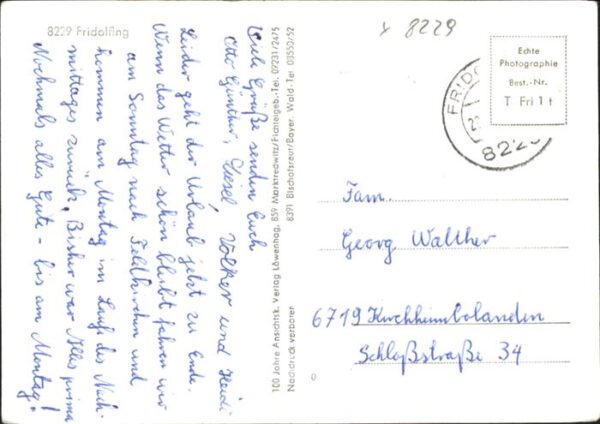 8229 Fridolfing
x 8229
Echte
Photographie
Best.-Nr.
T Fri 1 t
8229
Viele Grüße senden Euch
Otto Günther, Liesel, Volker und Heidi
Leider geht der Urlaub jetzt zu Ende.
Wenn das Wetter schön bleibt fahren wir
am Sonntag nach Feldkirchen und
kommen am Montag im Lauf des Nach-
mittages zurück. Bisher war Alles prima
Nochmals alles Gute - bis am Montag!
100 Jahre Ansichtsk. Verlag Löwenhag, 859 Marktredwitz/Fichtelgeb.-Tel. 09231/2475
8391 Bischofsreut/Bayer. Wald-Tel 03550/52
Nachdruck verboten
Fam.
Georg Walther
6719 Kirchheimbolanden
Schloßstraße 34
0